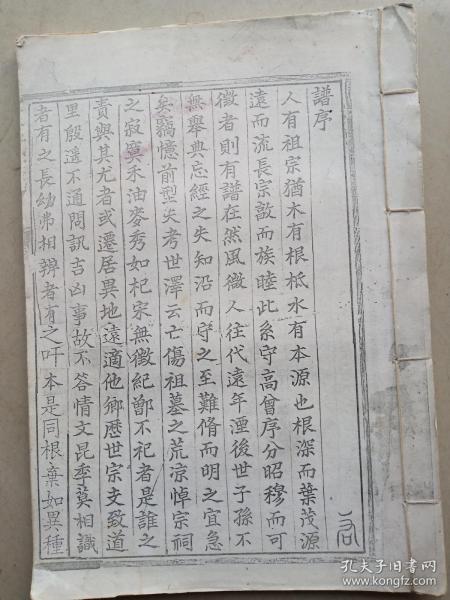 譜序
人有祖宗猶木有根柢水有本源也根深而葉茂源
遠而流長宗敦而族睦此系守高曾序分昭穆而可
徵者則有譜在然風微人往代遠年湮後世子孫不
無舉典忘經之失知沿而守之至難脩而明之宜急
矣竊憶前型失考世澤云亡傷祖墓之荒凉悼宗祠
之寂寞禾油麥秀如杞宋無徵紀鄫不祀者是誰之
責與其尤者或遷居異地遠適他鄉歷世宗支致道
里殷遥不通問訊吉凶事故不答情文昆季莫相識
者有之長幼弗相辨者有之吁本是同根棄如異種
孔夫子旧书网